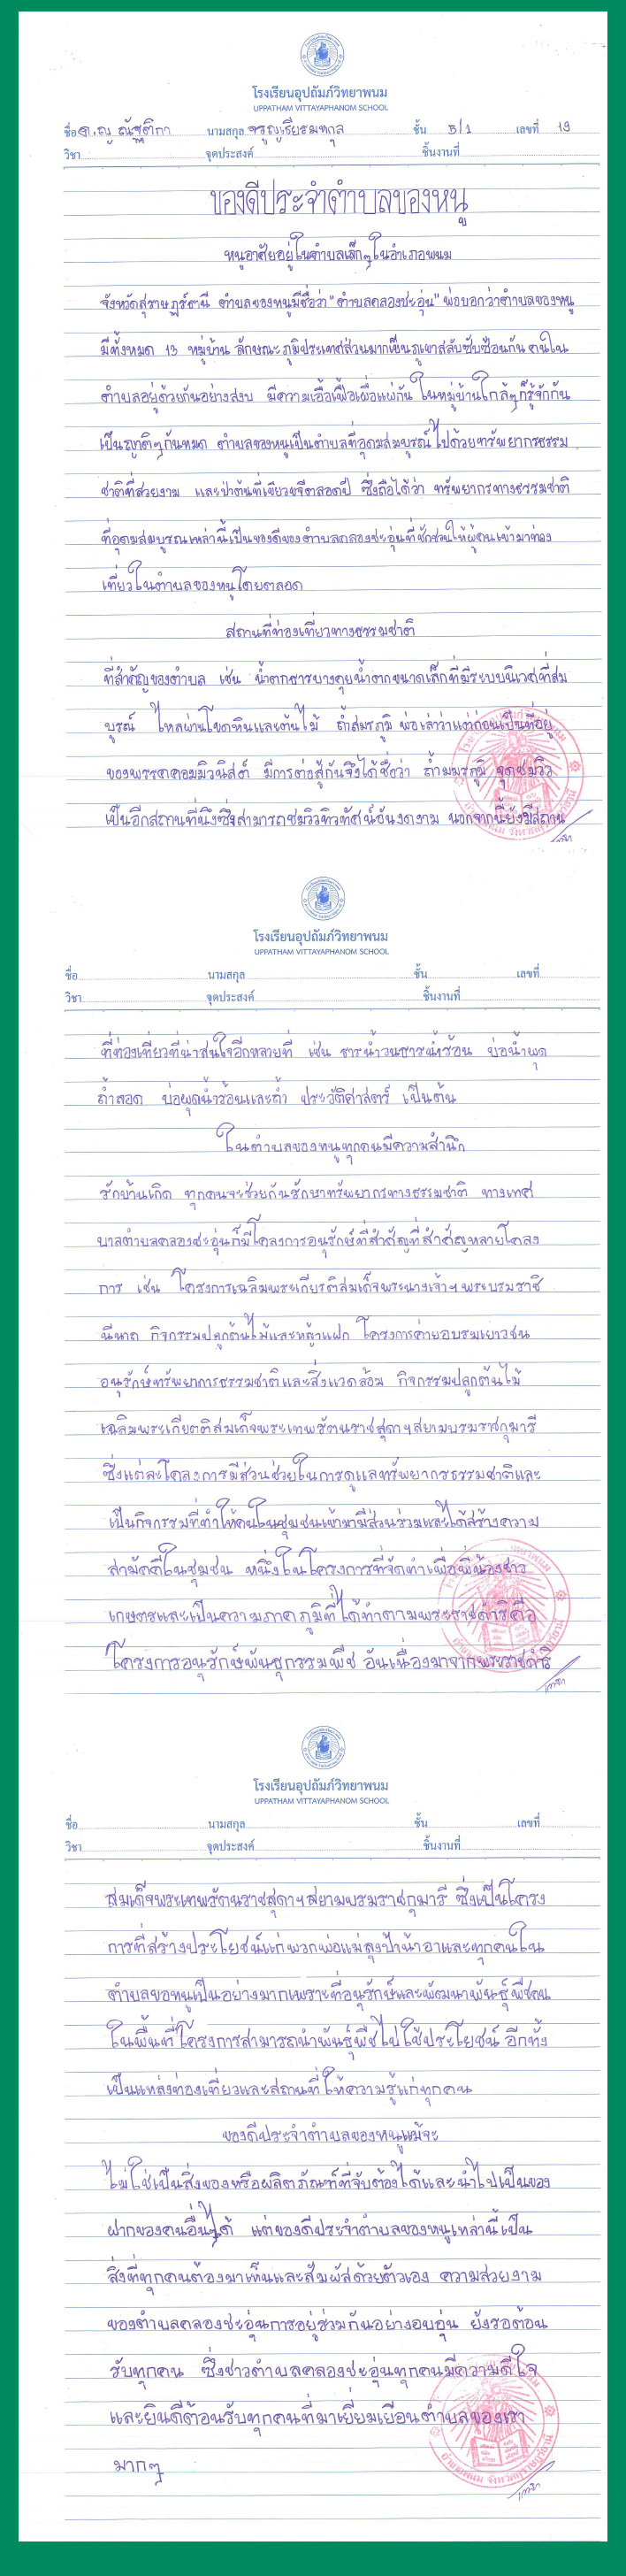 โรงเรียนอุปถัมภ์วิทยาพนม
UPPATHAM VITTAYAPHANOM SCHOOL
ชื่อ ด.ญ ณัฐติกา นามสกุล จรูญเธียรมหกุล ชั้น 5/1 เลขที่ 19
วิชา จุดประสงค์ ชิ้นงานที่
ของดีประจำตำบลของหนู
หนูอาศัยอยู่ในตำบลเล็กๆในอำเภอพนม
จังหวัดสุราษฎร์ธานี ตำบลของหนูมีชื่อว่า "ตำบลคลองชะอุ่น" พ่อบอกว่าตำบลของหนู
มีทั้งหมด 13 หมู่บ้าน ลักษณะภูมิประเทศส่วนมากเป็นภูเขาสลับซับซ้อนกัน คนใน
ตำบลอยู่ด้วยกันอย่างสงบ มีความเอื้อเฟื้อเผื่อแผ่กัน ในหมู่บ้านใกล้ๆก็รู้จักกัน
เป็นญาติๆกันหมด ตำบลของหนูเป็นตำบลที่อุดมสมบูรณ์ไปด้วยทรัพยากรธรรม
ชาติที่สวยงาม และป่าต้นที่เขียวขจีตลอดปี ซึ่งถือได้ว่า ทรัพยากรทางธรรมชาติ
ที่อุดมสมบูรณเหล่านี้เป็นของดีของตำบลคลองชะอุ่นที่ชักชวนให้ผู้คนเข้ามาท่อง
เที่ยวในตำบลของหนูโดยตลอด
สถานที่ท่องเที่ยวทางธรรมชาติ
ที่สำคัญของตำบล เช่น น้ำตกธารบางคุยน้ำตกขนาดเล็กที่มีระบบนิเวศที่สม
บูรณ์ ไหลผ่านโขดหินและต้นไม้ ถ้ำสมรภูมิ พ่อเล่าว่าแต่ก่อนเป็นที่อยู่
ของพรรคคอมมิวนิสต์ มีการต่อสู้กันจึงได้ชื่อว่า ถ้ำสมรภูมิ จุดชมวิว
เป็นอีกสถานที่นึงซึ่งสามารถชมวิวทิวทัศน์อันงดงาม นอกจากนี้ยังมีสถาน
โรงเรียนอุปถัมภ์วิทยาพนม
UPPATHAM VITTAYAPHANOM SCHOOL
ชื่อ นามสกุล ชั้น เลขที่
วิชา จุดประสงค์ ชิ้นงานที่
ที่ท่องเที่ยวที่น่าสนใจอีกหลายที่ เช่น ธารน้ำวนธารน้ำร้อน บ่อน้ำผุด
ถ้ำลอด บ่อผุดน้ำร้อนและถ้ำ ประวัติศาสตร์ เป็นต้น
ในตำบลของหนูทุกคนมีความสำนึก
รักบ้านเกิด ทุกคนจะช่วยกันรักษาทรัพยากรทางธรรมชาติ ทางเทศ
บาลตำบลคลองชะอุ่นก็มีโคลงการอนุรักษ์ที่สำคัญที่สำคัญหลายโคลง
การ เช่น โครงการเฉลิมพระเกียรติสมเด็จพระนางเจ้าฯ พระบรมราชิ
นีนาถ กิจกรรมปลูกต้นไม้และหญ้าแฝก โครงการค่ายอบรมเยาวชน
อนุรักษ์ทรัพยาการธรรมชาติและสิ่งแวดล้อม กิจกรรมปลูกต้นไม้
เฉลิมพระเกียตติสมเด็จพระเทพรัตนราชสุดาฯสยามบรมราชกุมารี
ซึ่งแต่ละโคลงการมีส่วนช่วยในการดูแลทรัพยากรธรรมชาติและ
เป็นกิจกรรมที่ทำให้คนในชุมชนเข้ามามีส่วนร่วมและได้สร้างความ
สามัคคีในชุมชน หนึ่งในโครงการที่จัดทำเพื่อพี่น้องชาว
เกษตรและเป็นความภาคภูมิที่ได้ทำตามพระราชดำริคือ
โครงการอนุรักษ์พันธุกรรมพืช อันเนื่องมาจากพระราชดำริ
โรงเรียนอุปถัมภ์วิทยาพนม
UPPATHAM VITTAYAPHANOM SCHOOL
ชื่อ นามสกุล ชั้น เลขที่
วิชา จุดประสงค์ ชิ้นงานที่
สมเด็จพระเทพรัตนราชสุดาฯสยามบรมราชกุมารี ซึ่งเป็นโครง
การที่สร้างประโยชน์แก่พวกพ่อแม่ลุงป้าน้าอาและทุกคนใน
ตำบลขอหนูเป็นอย่างมากเพราะที่อนุรักษ์และพัฒนาพันธุ์พืชคน
ในพื้นที่โครงการสามารถนำพันธุ์พืชไปใช้ประโยชน์ อีกทั้ง
เป็นแหล่งท่องเที่ยวและสถานที่ให้ความรู้แก่ทุกคน
ของดีประจำตำบลของหนูแม้จะ
ไม่ใช่เป็นสิ่งของหรือผลิตภัณฑ์ที่จับต้องได้และนำไปเป็นของ
ฝากของคนอื่นๆได้ แต่ของดีประจำตำบลของหนูเหล่านี้เป็น
สิ่งที่ทุกคนต้องมาเห็นและสัมผัสด้วยตัวเอง ความสวยงาม
ของตำบลคลองชะอุ่นการอยู่ร่วมกันอย่างอบอุ่น ยังรอต้อน
รับทุกคน ซึ่งชาวตำบลคลองชะอุ่นทุกคนมีความดีใจ
และยินดีต้อนรับทุกคนที่มาเยี่ยมเยือนตำบลของเรา
มากๆ